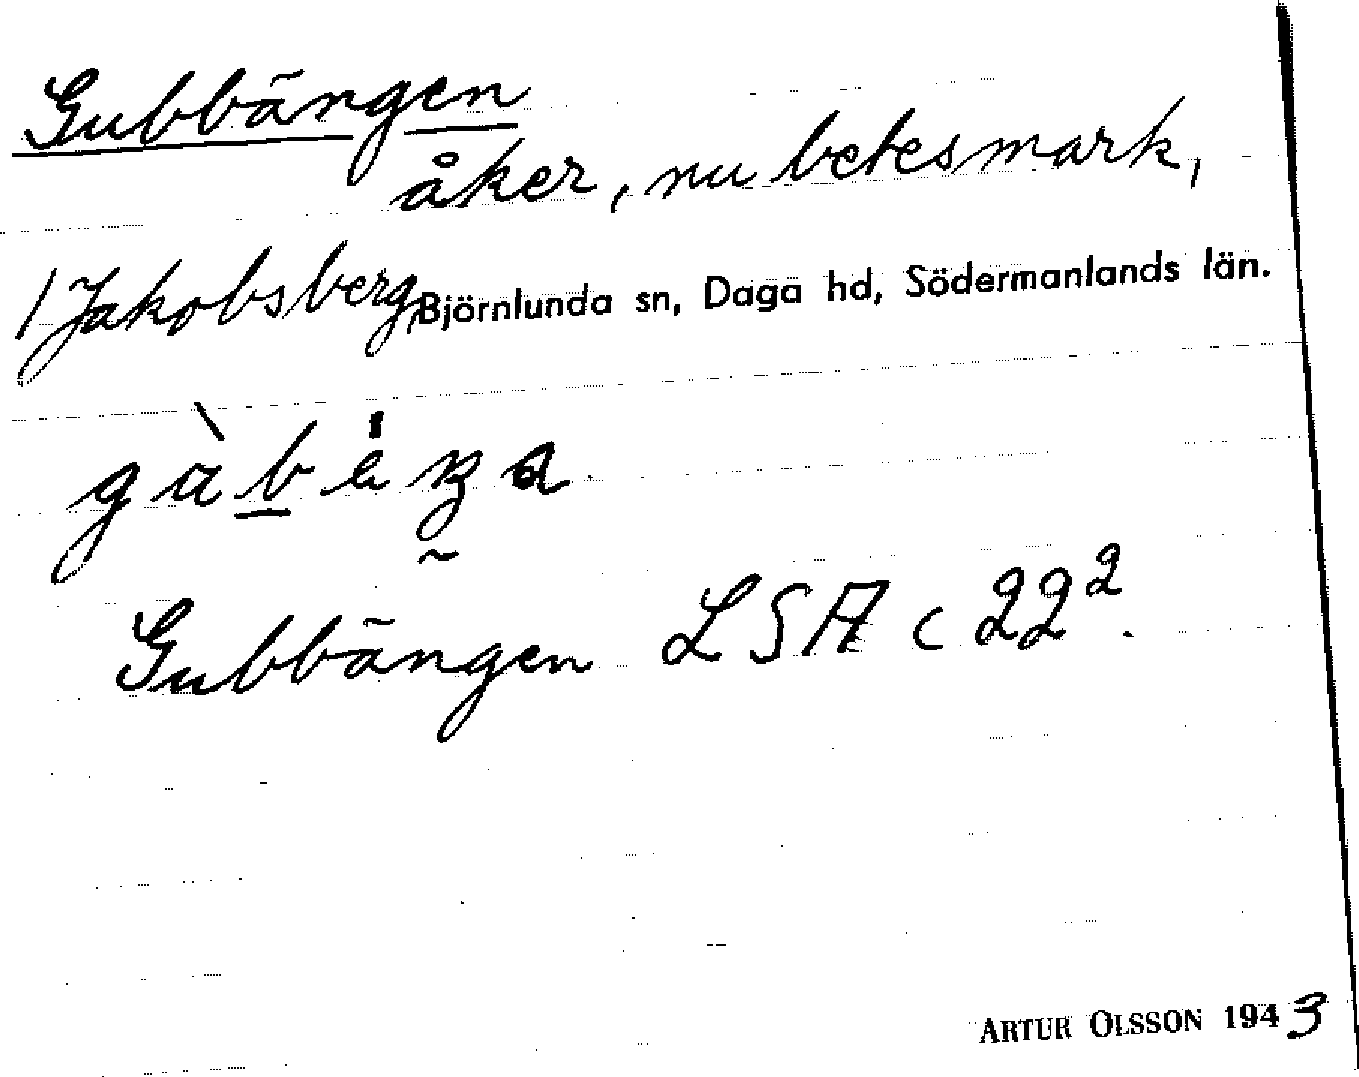 Gubbängen
åker, nu betesmark,
/Jakobsberg, Björnlunda sn, Daga hd, Södermanlands län.
Gubbängen LSA C 22².
ARTUR OLSSON 1943